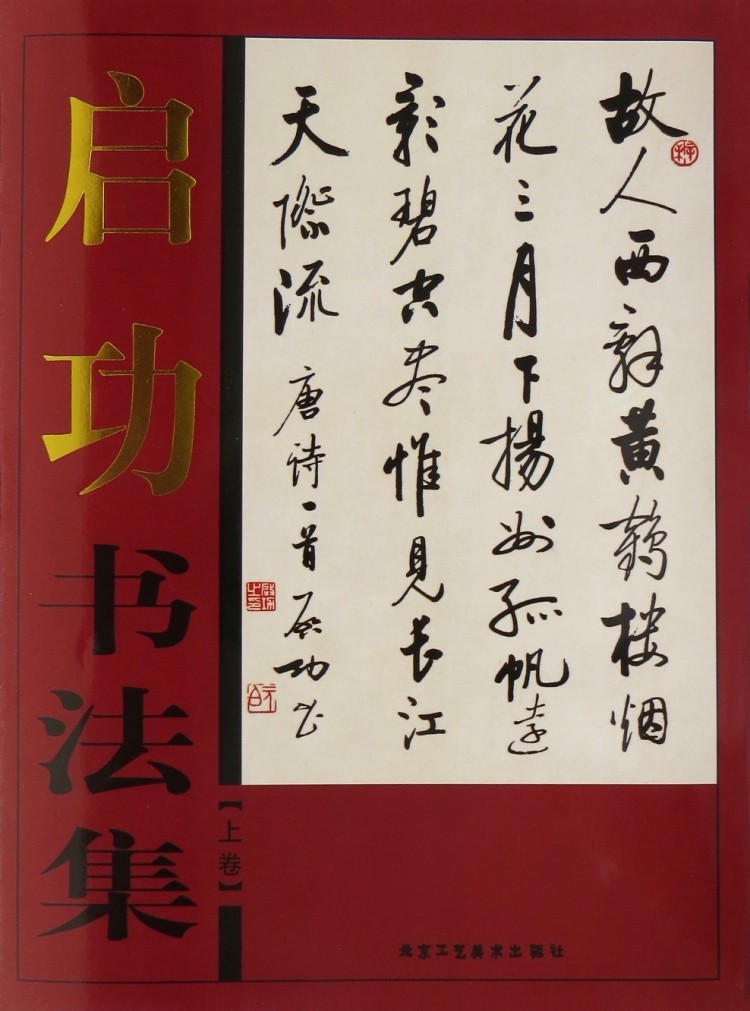 启功书法集
【上卷】
故人西辞黄鹤楼烟
花三月下揚州孤帆遠
影碧空尽惟見长江
天際流 唐诗一首 启功书
北京工艺美术出版社